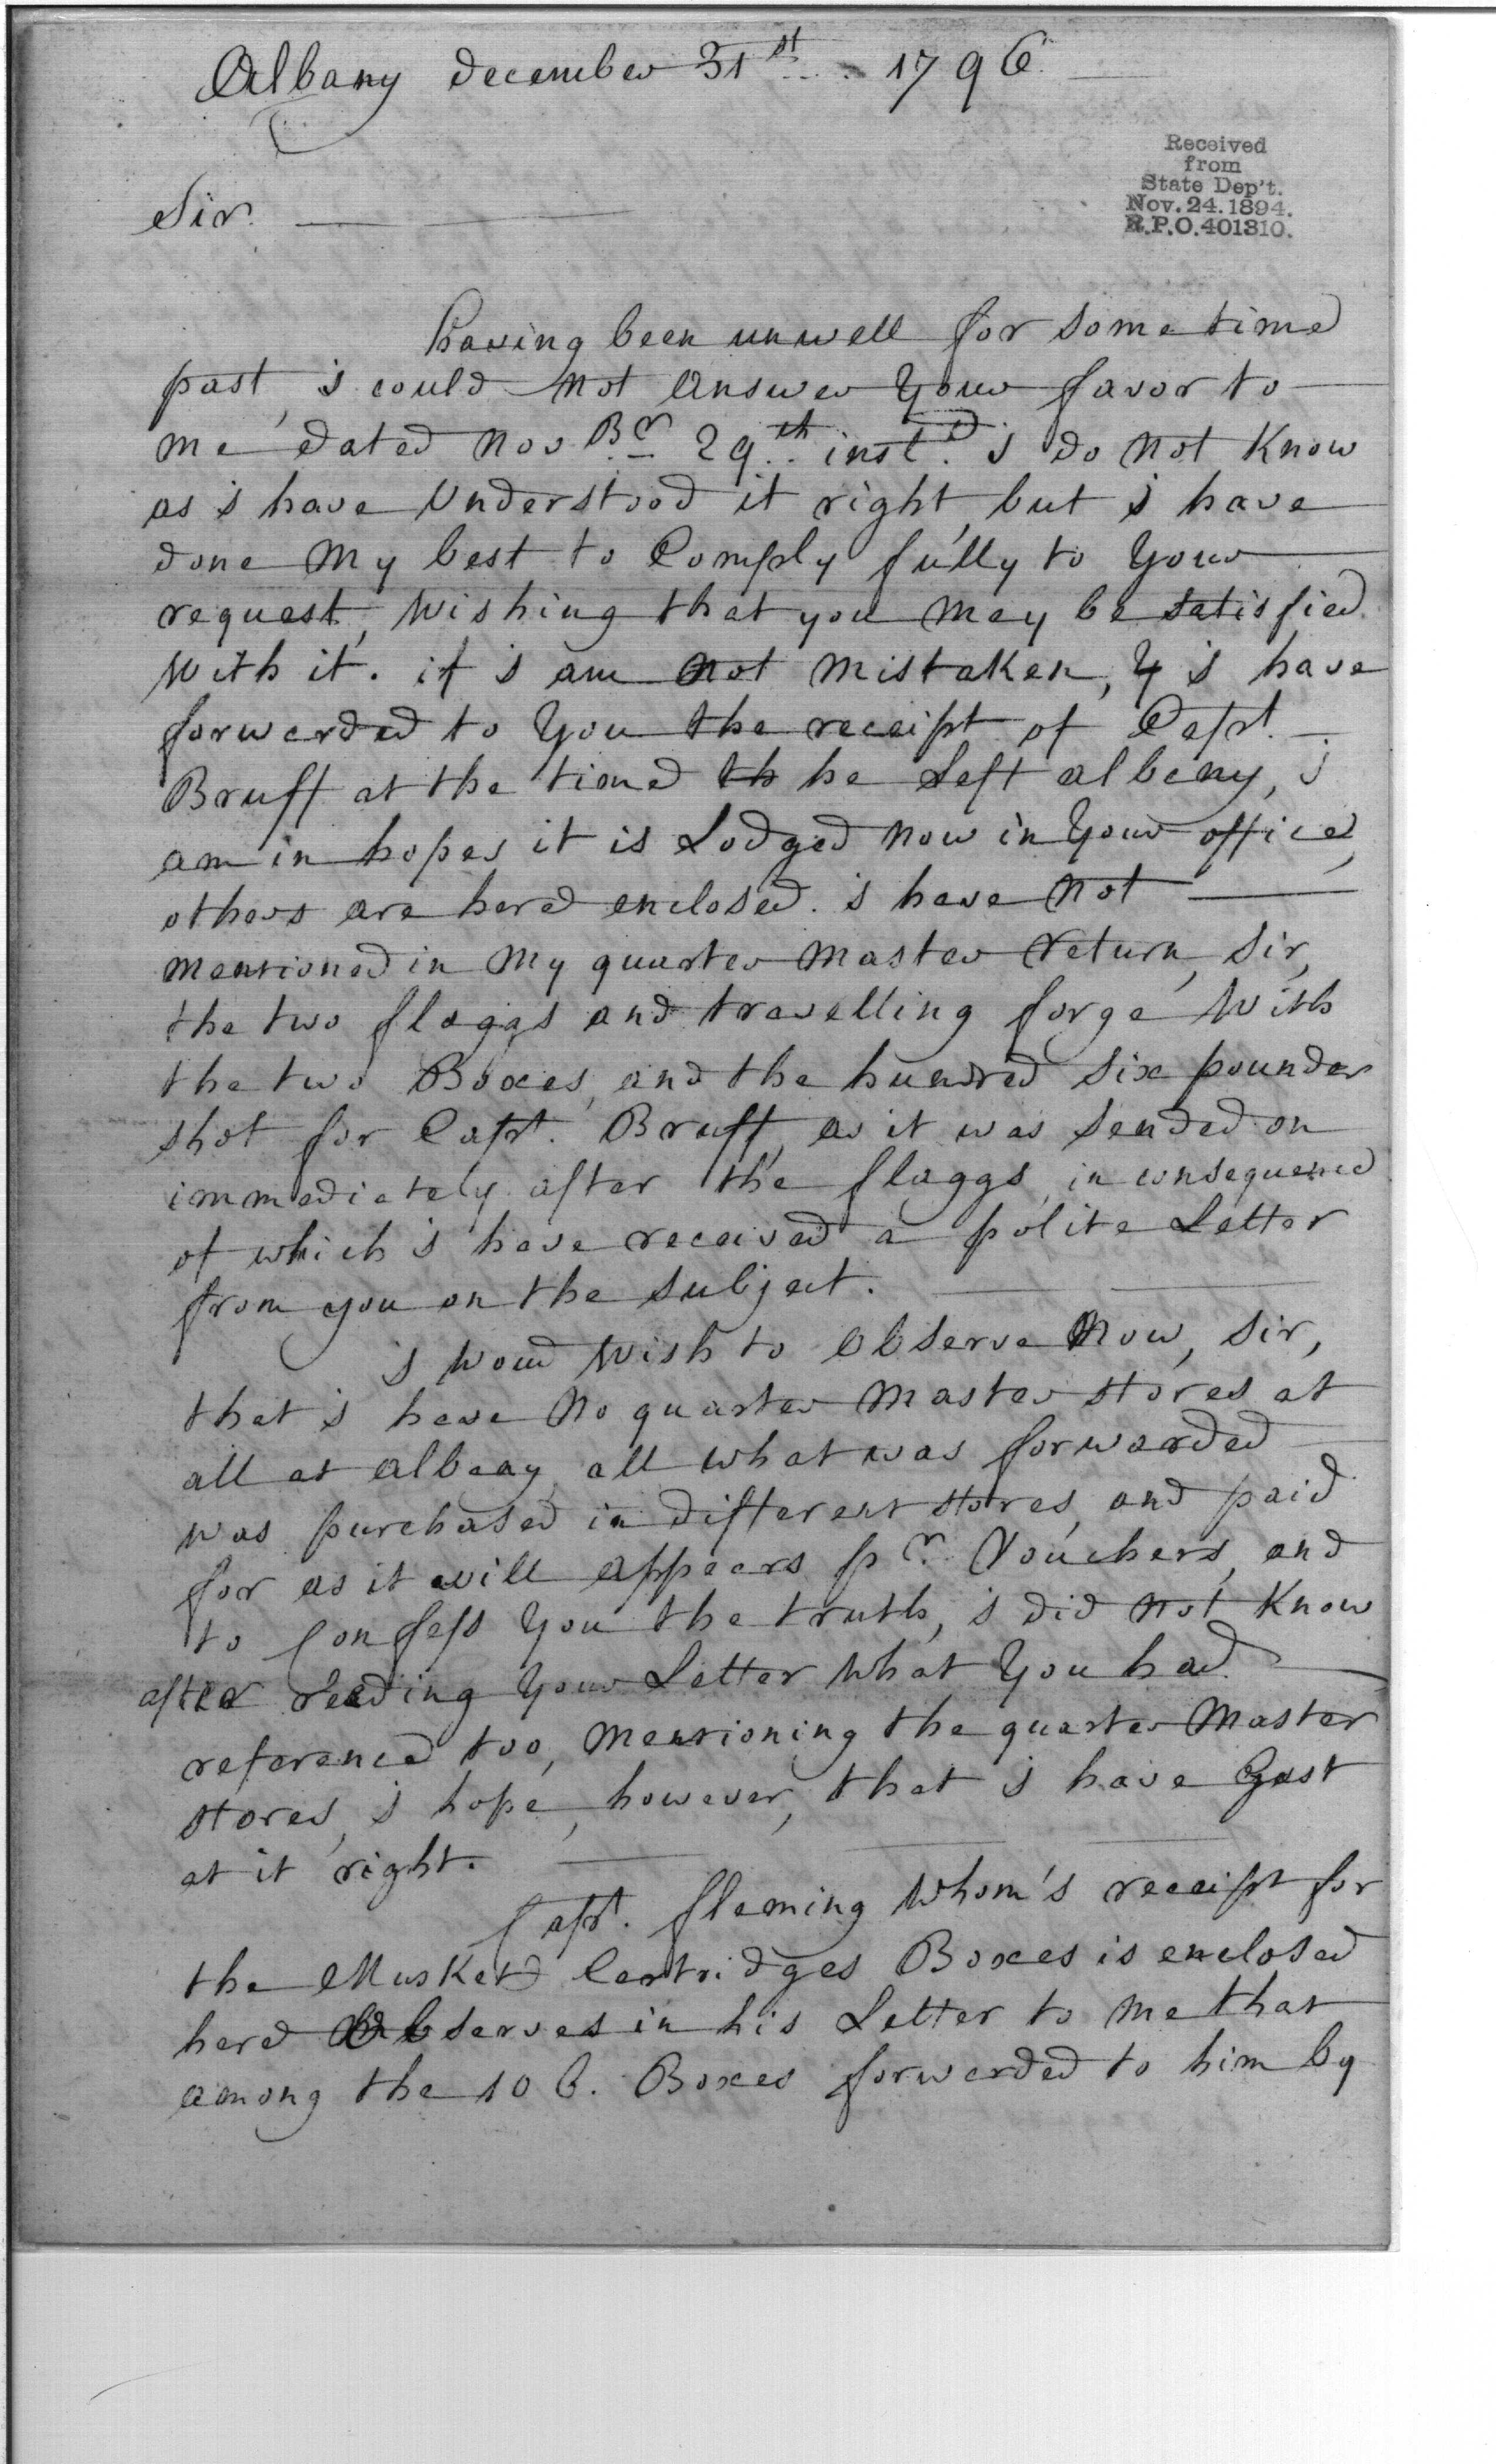 Albany december 31st 1796
Received
from
State Dep't.
Nov. 24. 1894.
R.P.O. 401310.
Sir.
having been unwell for some time
past, i could not answer Your favor to
me dated novBr 29th instd. i do not Know
as i have Understood it right, but i have
done My best to Comply fully to Your
request, Wishing that you may be satisfied
With it. if i am not Mistaken, i have
forwarded to You the receipt of Capt.
Bruff at the time th he Left albany, i
am in hopes it is Lodged now in Your office,
others are here enclosed. i have not
mentioned in My quarter Master return, Sir,
the two flaggs and travelling forge With
the two Boxes, and the hundred Six pounder
shot for Capt. Bruff, as it was Sended on
immediately after the flaggs, in consequence
of which i have received a polite Letter
from you on the Subject.
i Woud Wish to Observe Now, Sir,
that i have No quarter Master stores at
all at albany, all what was forwarded
was purchased in different stores, and paid
for as it will appears pr. Vouchers, and
to Confess You the truth, i did not Know
after reading Your Letter What You had
reference too, Mentioning the quarter Master
stores, i hope, however, that i have Gest
at it right.
Capt. fleming Whom's receipt for
the Musket Cartridges Boxes is enclosed
here Observes in his Letter to me that
among the 10 C. Boxes forwarded to him by